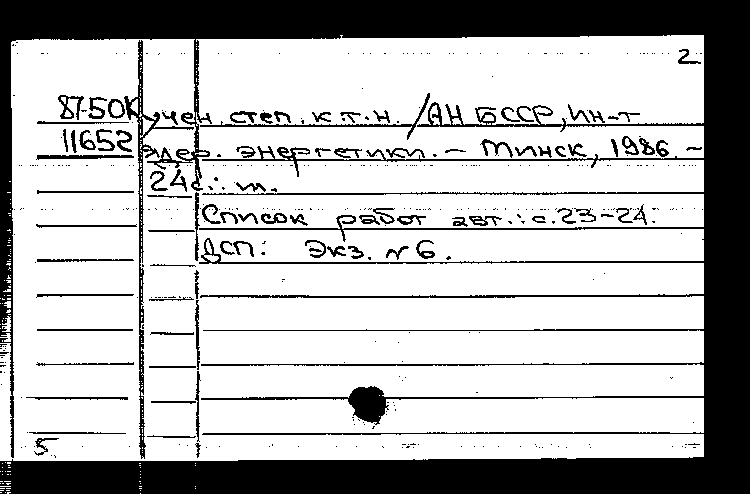 2
87-50К учен. степ. к.т.н. / АН БССР, Ин-т
11652 ядер. энергетики. – Минск, 1986. –
24с.: ил.
Список работ авт.: с.23-24.
ДСП: Экз. N 6.
5